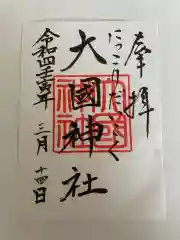 奉拝
にっこりだいこく
大國神社
令和四壬寅年
三月
十四日